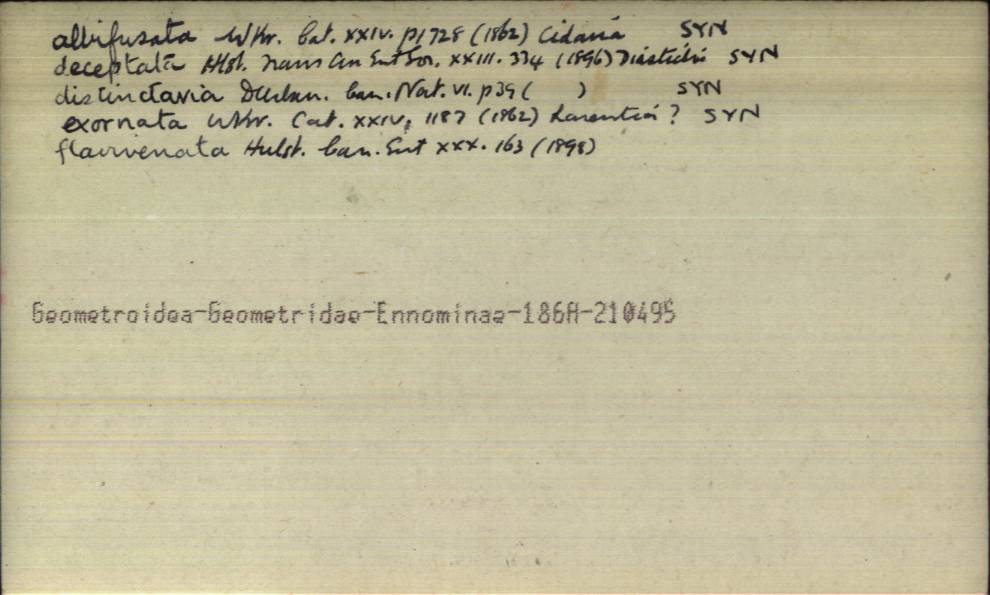 albifusata Wkr. Cat. XXIV. p1728 (1862) Cidaria SYN
deceptata Hlst. Trans Am Ent Soc. XXIII. 334 (1896) Diastictis SYN
distinctaria Durban. Can. Nat. VI. p39 ( ) SYN
exornata Wkr. Cat. XXIV, 1187 (1862) Larentia? SYN
flavivenata Hulst. Can. Ent XXX. 163 (1898)
Geometroidea-Geometridae-Ennominae-186A-210495